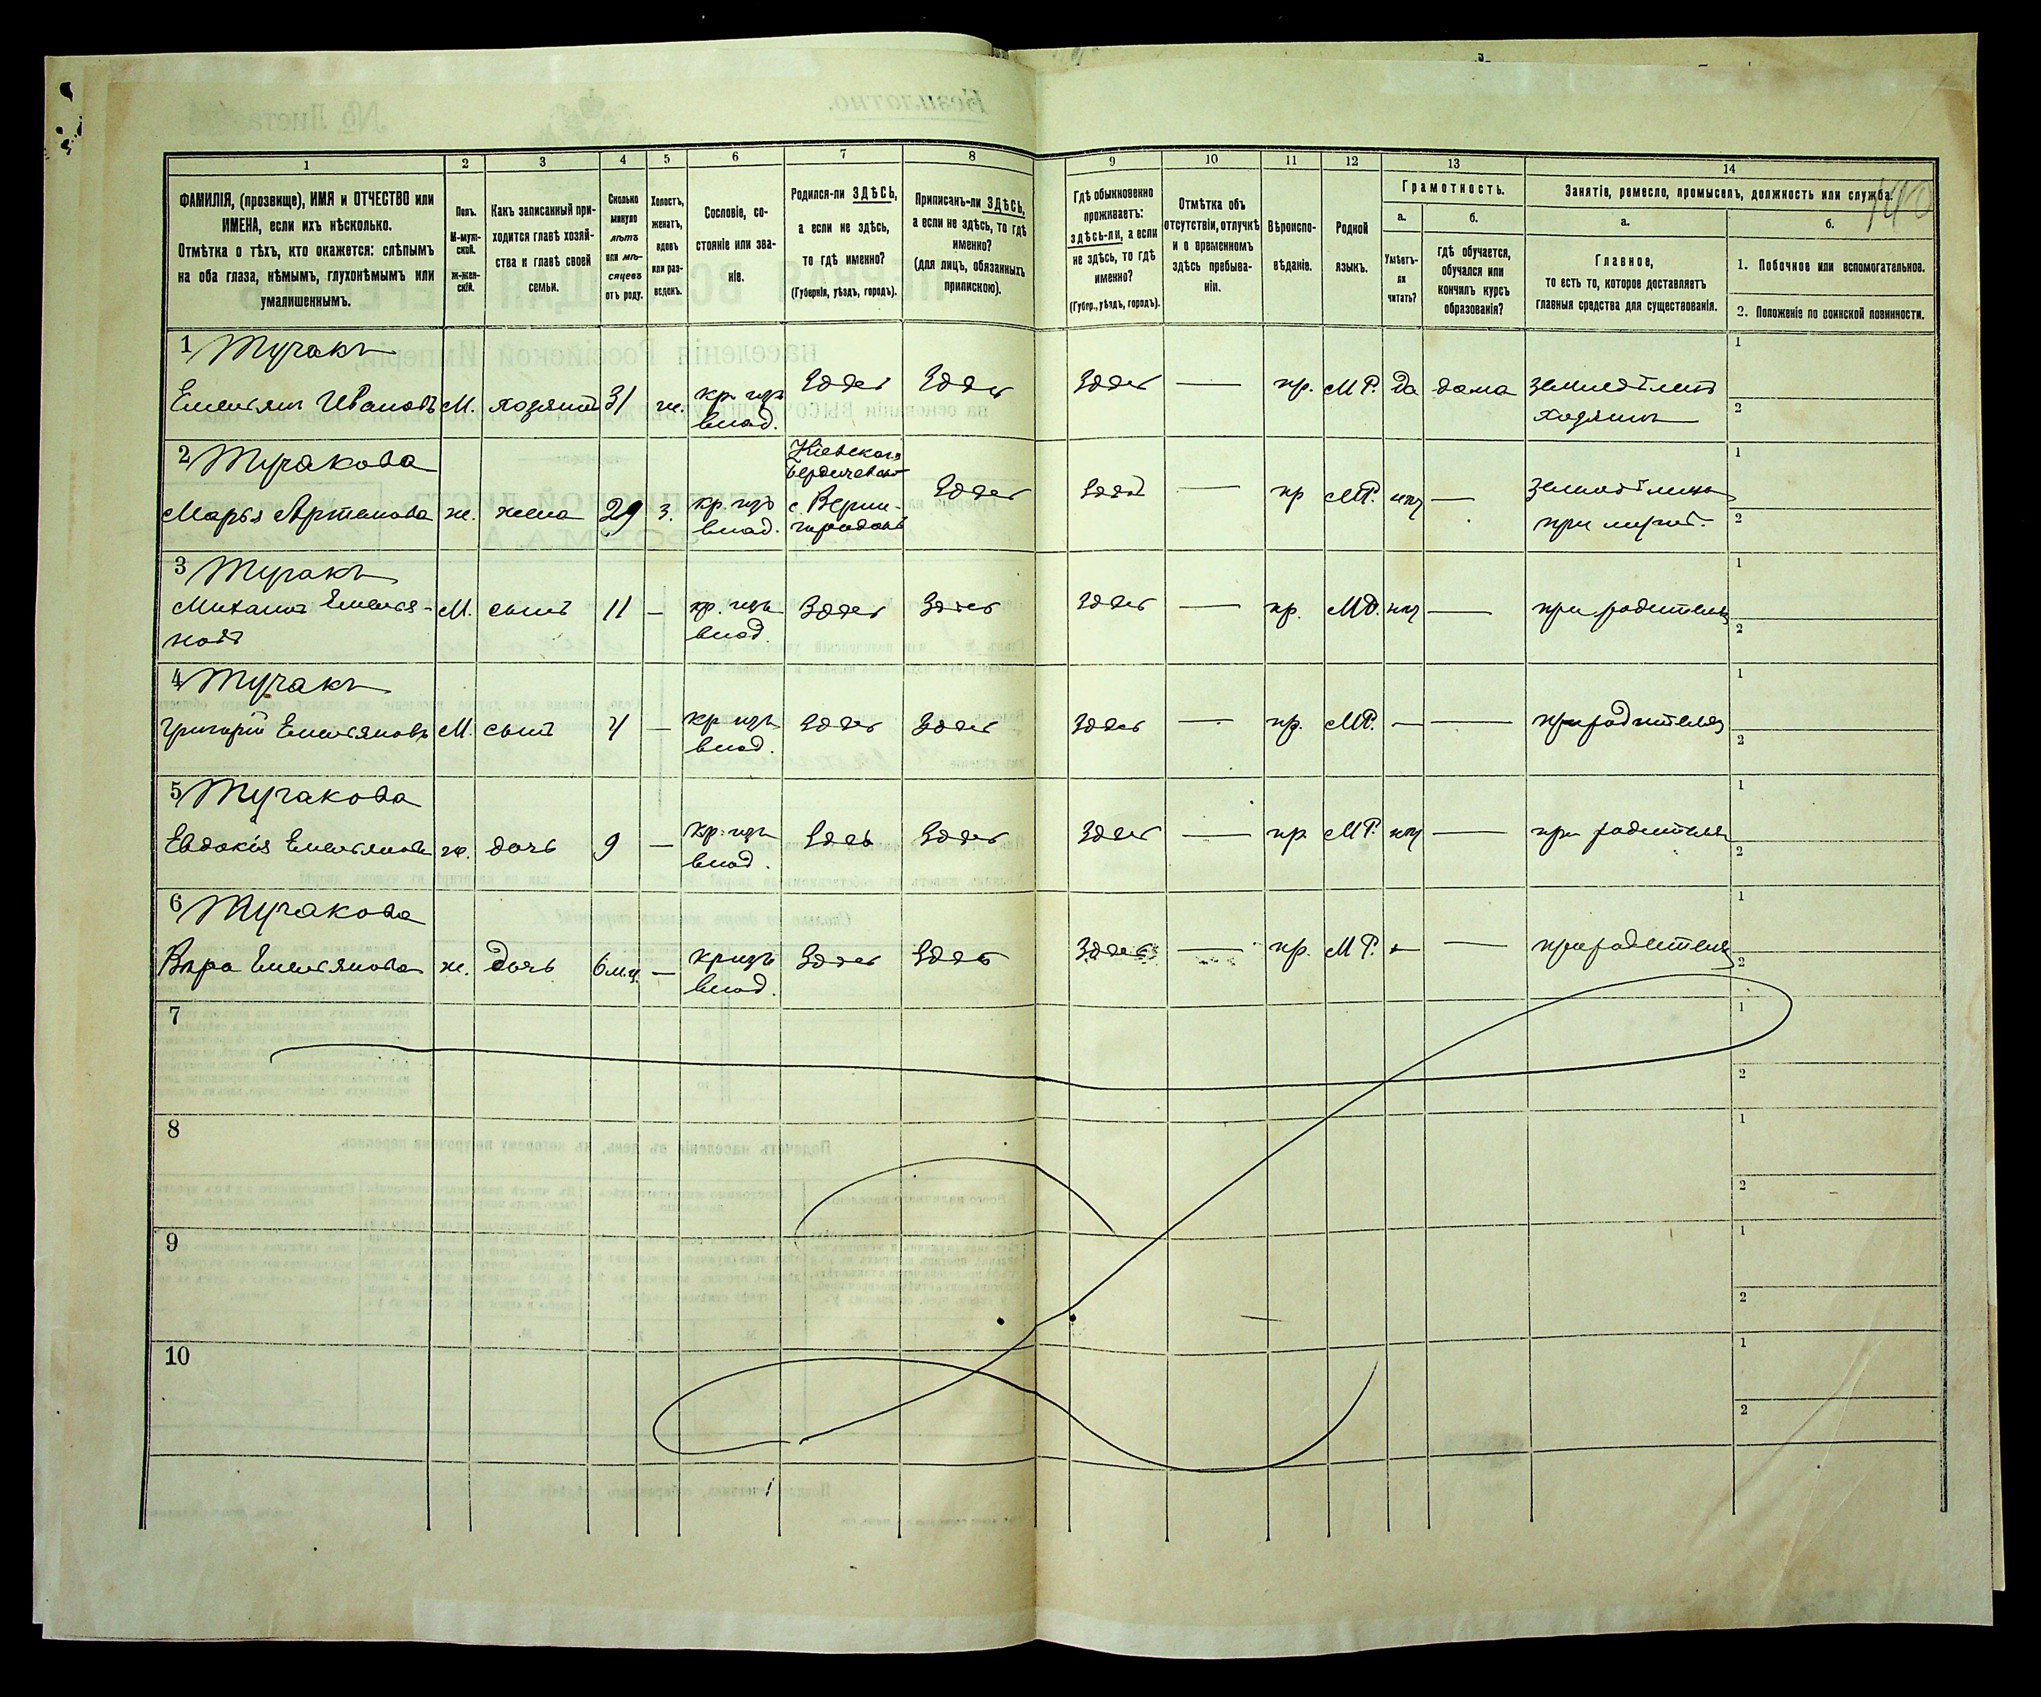 1 2 3 4 5 6 7 8 9 10 11 12 13 14
ФАМИЛІЯ, (прозвище), ИМЯ и ОТЧЕСТВО или
ИМЕНА, если ихъ нѣсколько.
Отмѣтка о тѣхъ, кто окажется: слѣпымъ
на оба глаза, нѣмымъ, глухонѣмымъ или
умалишеннымъ.
Полъ.
М-муж-
ской.
Ж-жен-
скій.
Какъ записанный при-
ходится главѣ хозяй-
ства и главѣ своей
семьи.
Сколько
минуло
лѣтъ
или мѣ-
сяцевъ
отъ роду.
Холостъ,
женатъ,
вдовъ
или раз-
веденъ.
Сословіе, со-
стояніе или зва-
ніе.
Родился-ли ЗДѢСЬ,
а если не здѣсь,
то гдѣ именно?
(Губернія, уѣздъ, городъ).
Приписанъ-ли ЗДѢСЬ,
а если не здѣсь, то гдѣ
именно?
(для лицъ, обязанныхъ
припискою).
Гдѣ обыкновенно
проживаетъ:
здѣсь-ли, а если
не здѣсь, то гдѣ
именно?
(Губер., уѣздъ, городъ).
Отмѣтка объ
отсутствіи, отлучкѣ
и о временномъ
здѣсь пребыва-
ніи.
Вѣроиспо-
вѣданіе.
Родной
языкъ.
Грамотность.
а.
Умѣетъ-
ли
читать?
б.
гдѣ обучается,
обучался или
кончилъ курсъ
образованія?
Занятіе, ремесло, промыселъ, должность или служба.
140
а.
Главное,
то есть то, которое доставляетъ
главныя средства для существованія.
б.
1. Побочное или вспомогательное.
2. Положеніе по воинской повинности.
1 Тучакъ
Емельян Ивановъ М. хозяинъ 31 ж. кр. изъ влад. Здѣсь Здѣсь Здѣсь — пр. МР. Да дома земледѣлецъ хозяинъ
1
2
2 Тучакова
Марья Артемова ж. жена 29 з. кр. изъ влад. Кіевской Бердичевск Здѣсь Здѣсь — пр МР. нѣт —
1
2
3 Тучакъ
Михаилъ Емелья-
новъ М. сынъ 11 — кр. изъ влад. Здѣсь Здѣсь Здѣсь — пр. МР. нѣт — при родителях
1
2
4 Тучакъ
Григорій Емельяновъ М. сынъ 4 — кр изъ влад. Здѣсь Здѣсь Здѣсь — пр. МР. — — при родителях
1
2
5 Тучакова
Евдокія Емельянова ж. дочь 9 — кр. изъ влад. Здѣсь Здѣсь Здѣсь — пр МР. нѣт — при родителях
1
2
6 Тучакова
Вѣра Емельянова ж. дочь 6 мц. — кр изъ влад. Здѣсь Здѣсь Здѣсь — пр. МР. — — при родителях
1
2
7
1
2
8
1
2
9
1
2
10
1
2